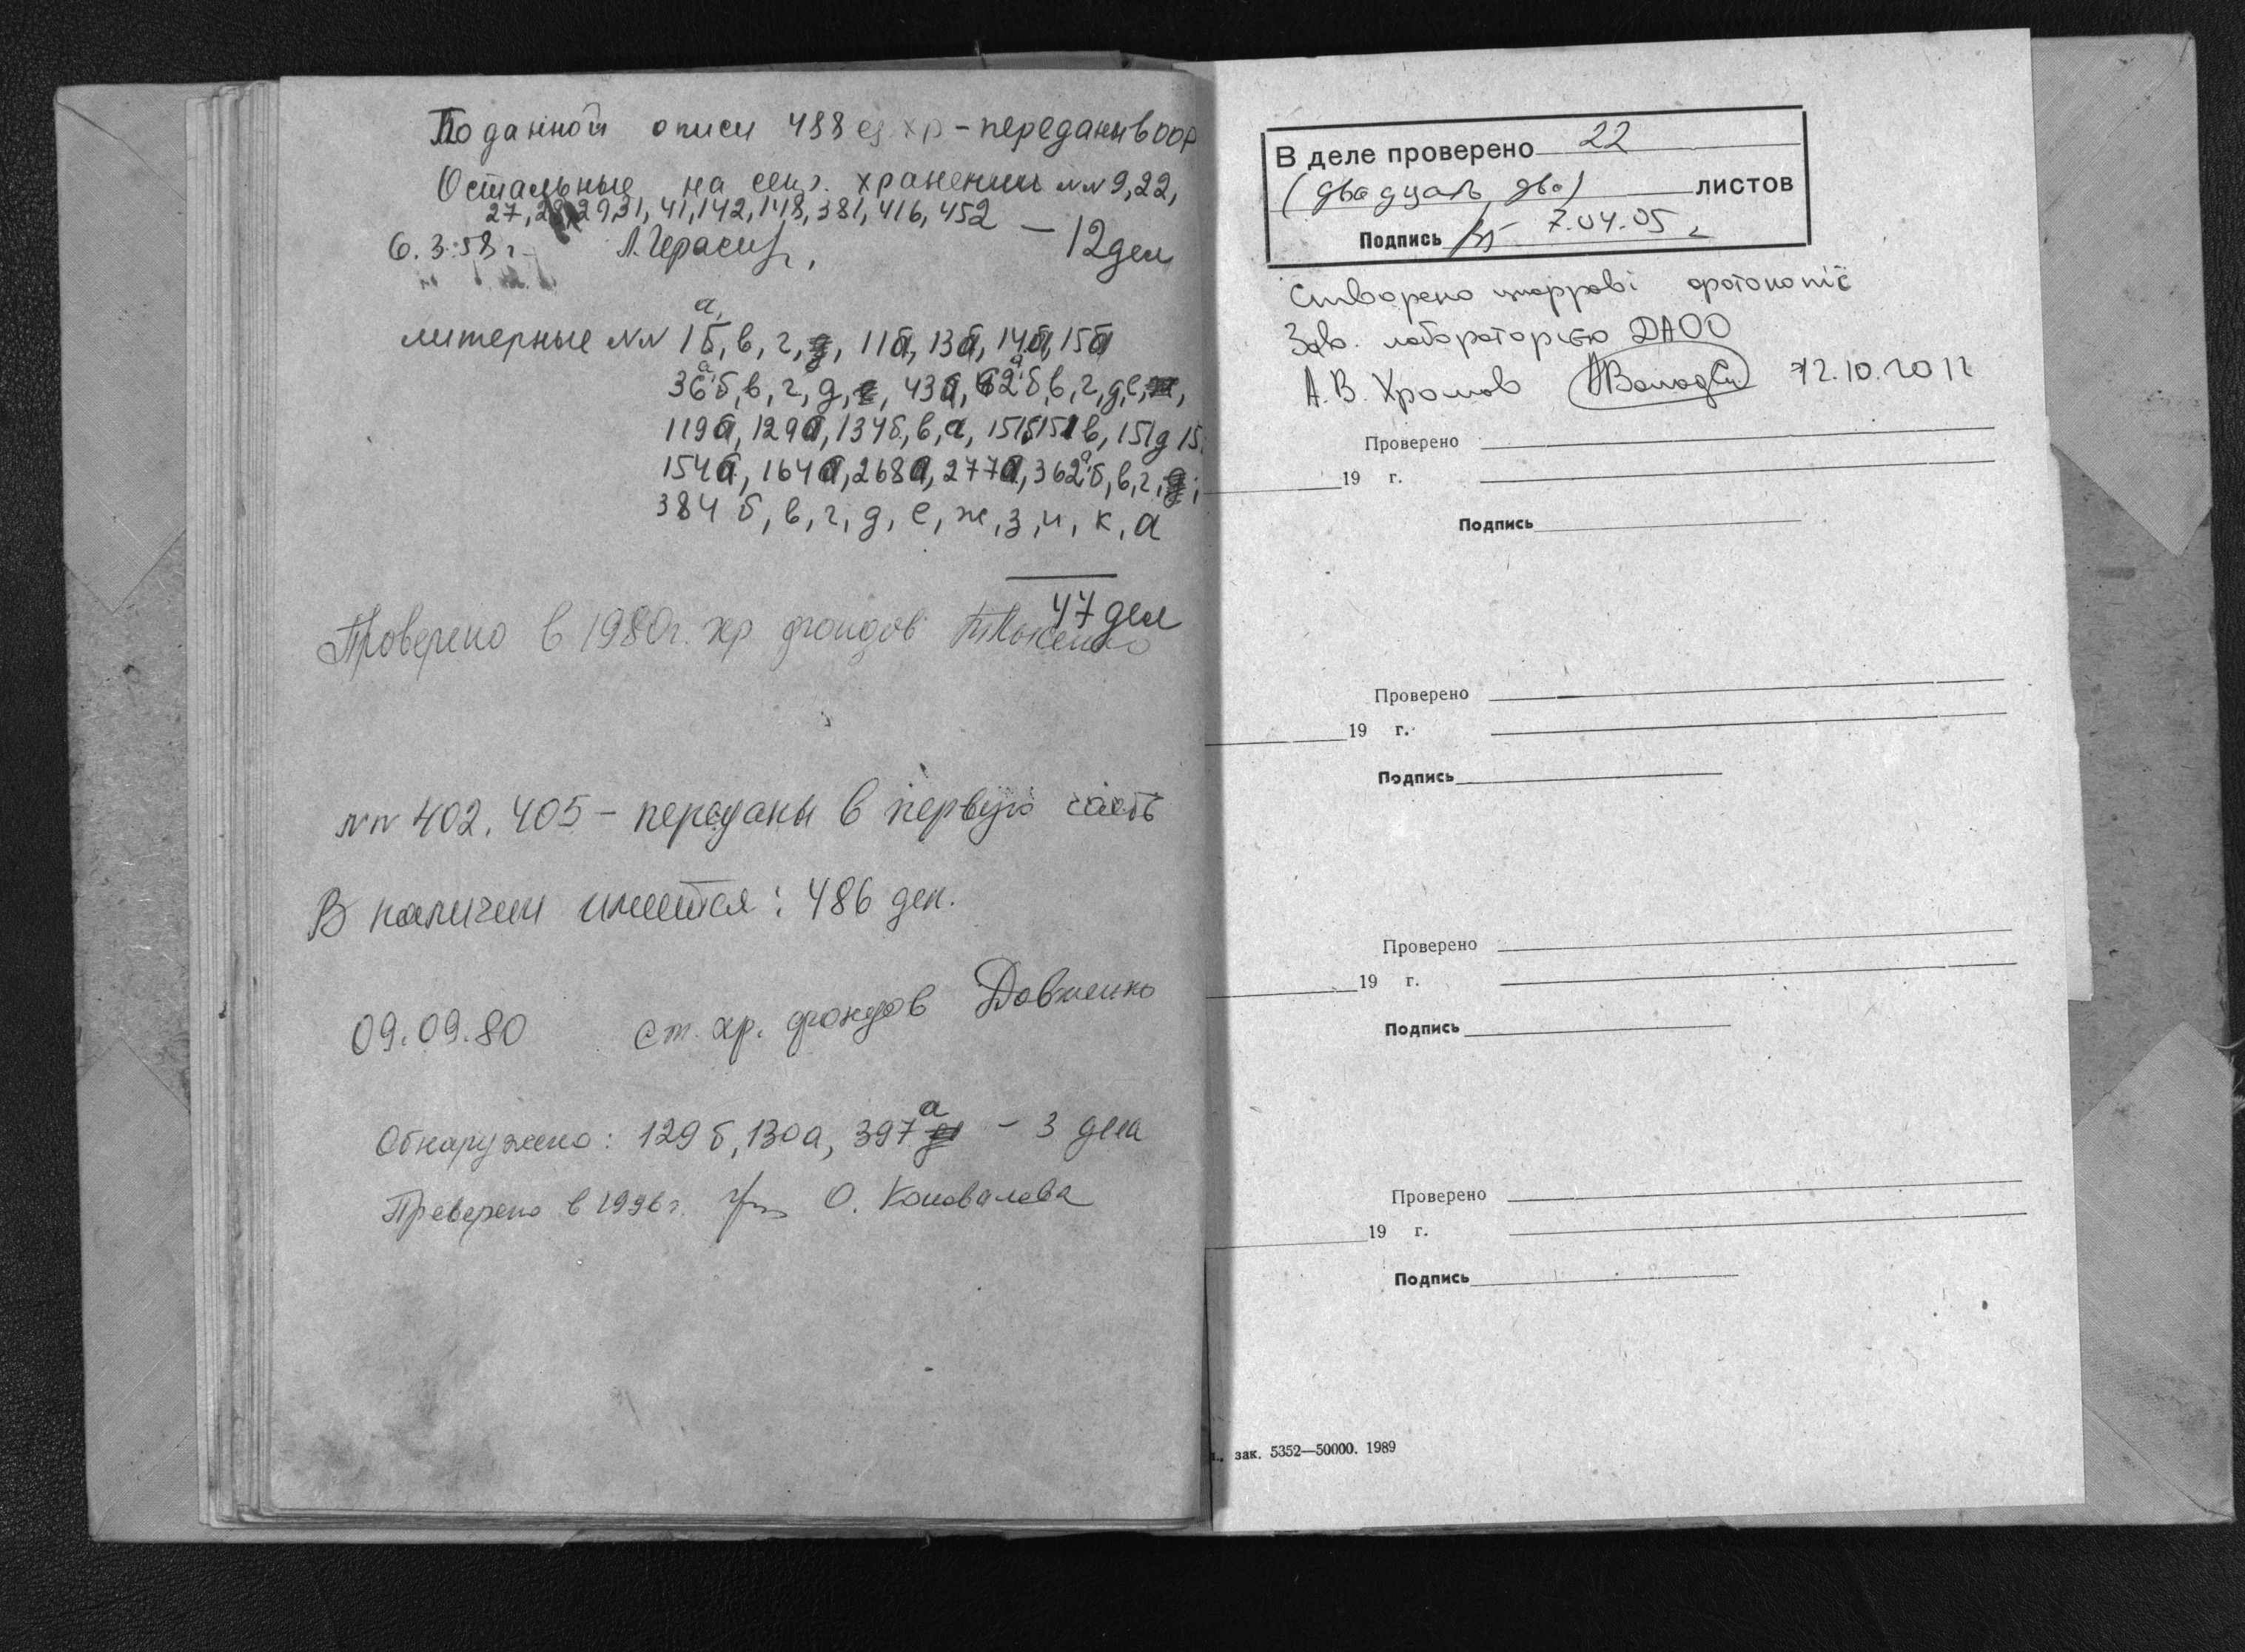 По данной описи 488 ед. хр - переданы в ООФ
Остальные на секр. хранении №№ 9, 22,
27, 28, 29, 31, 41, 142, 148, 381, 416, 452 — 12 дел
6.3.58 г.
литерные №№ 1а, б, в, г, 11а, 13а, 14а, 15а
36а, б, в, г, д, 43а, 62а, б, в, г, д, е,
119а, 129а, 134б, в, а, 151б, 151в, 151д 15
154а, 164а, 268а, 277а, 362а, б, в, г,
384 б, в, г, д, е, ж, з, и, к, а
47 дел
Проверено в 1980г. хр фондов
№№ 402, 405 - переданы в первую часть
В наличии имеется: 486 дел.
09.09.80 ст. хр. фондов Довженко
Обнаружено: 129б, 130а, 397а - 3 дела
Проверено в 1996г. О. Коновалева
В деле проверено 22
(двадцать два) листов
Подпись 7.04.05 г
Створено цифрові фотокопії
Зав. лабораторією ДАОО
А.В. Хромов 12.10.2012
Проверено
19 г.
Подпись
Проверено
19 г.
Подпись
Проверено
19 г.
Подпись
Проверено
19 г.
Подпись
зак. 5352—50000. 1989